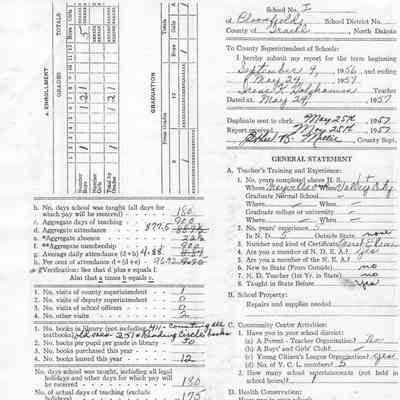 School No. I
of Bloomfield, School District No.
County of Traill, North Dakota
To County Superintendent of Schools:
I hereby submit my report for the term beginning
September 4, 1956, and ending
May 24, 1957
Teacher
Dated at May 24, 1957
Duplicate sent to clerk May 25th 1957
Report received May 25th 1957
County Supt.
GENERAL STATEMENT
A. Teacher's Training and Experience:
1. No. years completed above H. S. 1
Where Mayville or Where Valley City
Graduate Normal School
Where When
Graduate college or university
Where When
2. No. years' experience: 5
In N. D. Outside State none
3. Number and kind of Certificate
4. Are you a member of N. D. E. A.? Yes
5. Are you a member of the N. E. A.?
6. New to State (From Outside) no
7. N. D. Teacher (1st Yr. in State) no
8. Taught in State Before Yes
B. School Property:
Repairs and supplies needed
C. Community Center Activities:
1. Have you in your school district:
(a) A Parent - Teacher Organization? No
(b) A Boys' and Girls' Club?
(c) Young Citizen's League Organization? Yes
(d) No. of Y. C. L. members? 5
2. How many school entertainments (not held in
school hours)? 1
D. Health Conservation:
a. ENROLLMENT
GRADES
TOTALS
Boys
Girls
Number Boys
Number Girls
Total by Grades
GRADUATION
From Grades
Boys
Girls
b. No. days school was taught (all days for
which pay will be received) 180
c. Aggregate days of teaching
d. Aggregate attendance 877.5
e. *Aggregate absence 22½
f. **Aggregate membership 900
g. Average daily attendance (d÷b) 4.88
h. Per cent of attendance (d÷(d+e)
Verification: See that d plus e equals f.
Also that a times b equals c.
1. No. visits of county superintendent 1
2. No. visits of deputy superintendent 0
3. No. visits of school officers 0
4. No. other visits 2
1. No. books in library (not including 411 - counting all
textbooks) old ones - 251 + Reading Circle books
2. No. books per pupil grade in library 50
3. No. books purchased this year
4. No. books issued this year 12
No. days school was taught, including all legal
holidays and other days for which pay will
be received 180
No. of actual days of teaching (exclude
holidays) 175